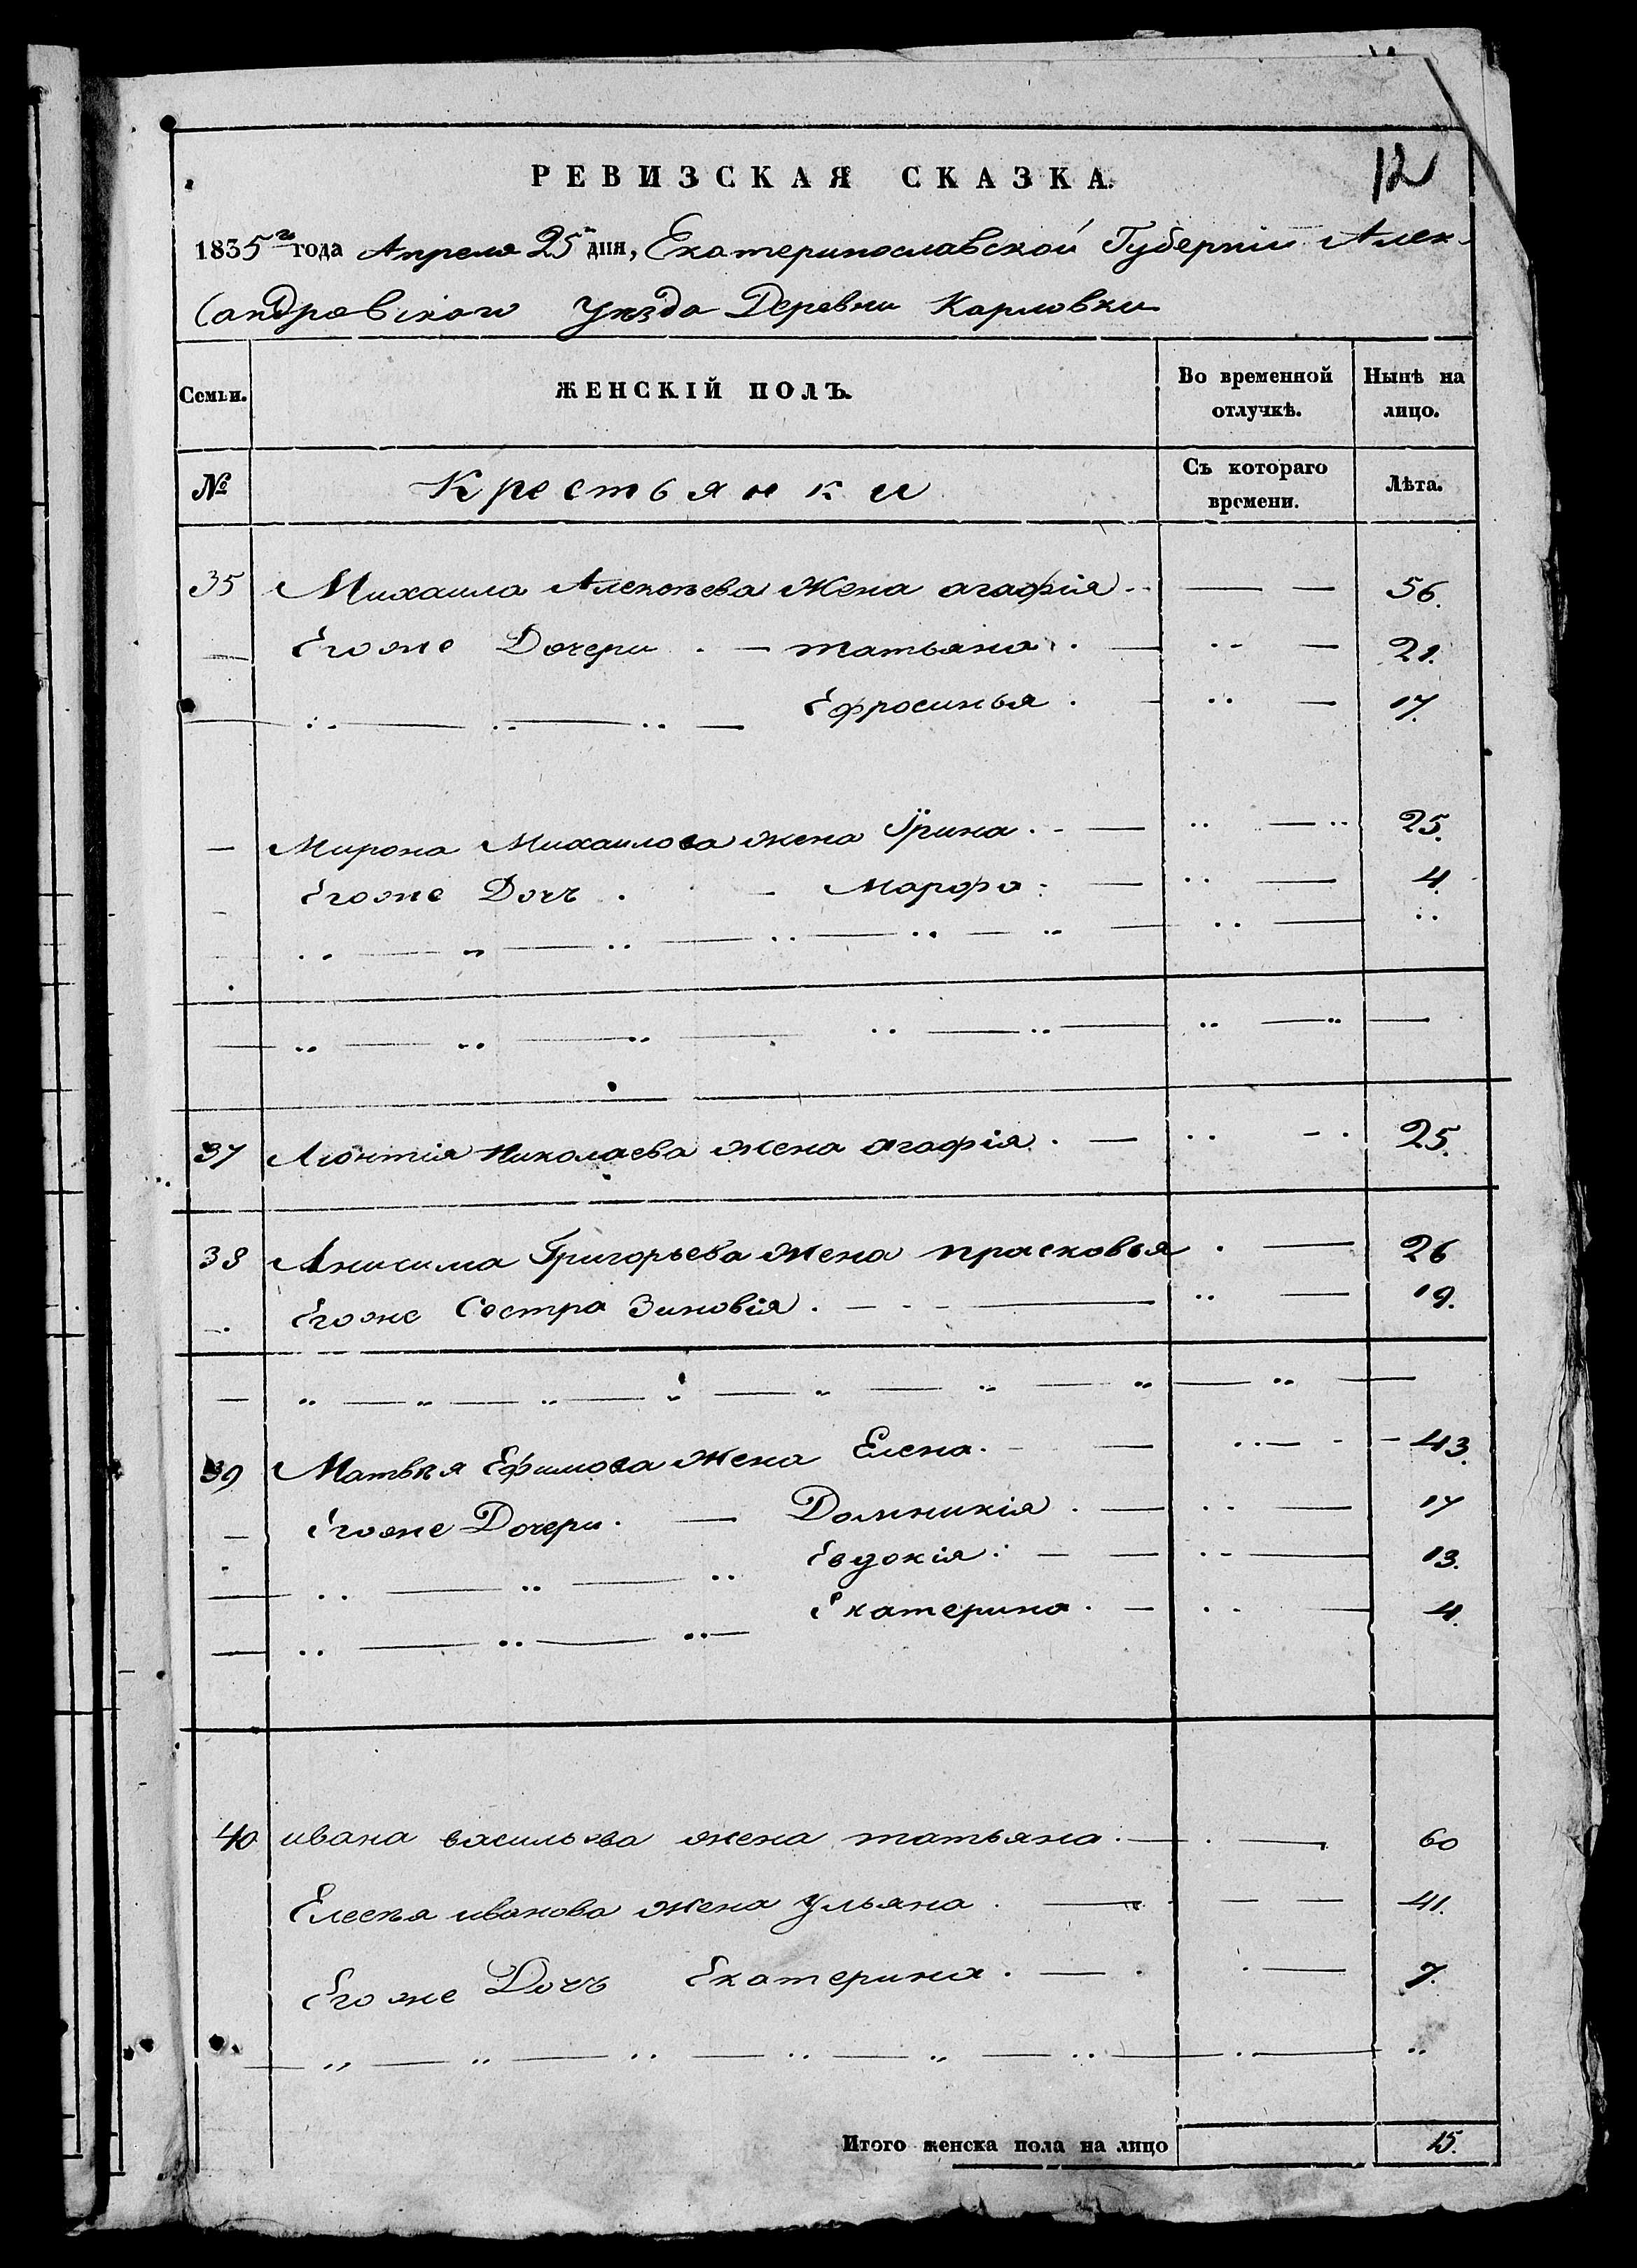 РЕВИЗСКАЯ СКАЗКА.
12
1835го года Апреля 25 дня, Екатеринославской Губернiи Алек-
сандровскаго Уѣзда Деревни Карловки
Семьи.
ЖЕНСКІЙ ПОЛЪ.
Во временной отлучкѣ.
Нынѣ на лицо.
№
Крестьянки
Съ котораго времени.
Лѣта.
35 Михаила Алексѣева жена агафія 56.
Егоже Дочери татьяна 21.
Ефросинья 17.
Мирона Михаилова жена Ирина 25.
Егоже Дочь Марфа 4.
37 Лѣонтія Николаева жена агафія 25.
38 Анисима Григорьева жена прасковья 26
Егоже Сестра Зиновія 19.
39 Матвѣя Ефимова жена Елена 43.
Егоже Дочери Домникія 17
Евдокія 13.
Екатерина 4.
40 ивана васильева жена татьяна 60
Елесѣя иванова жена Ульяна 41.
Егоже Дочь Екатерина 7.
Итого женска пола на лицо 15.